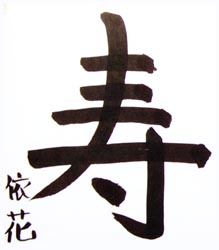 寿
依花